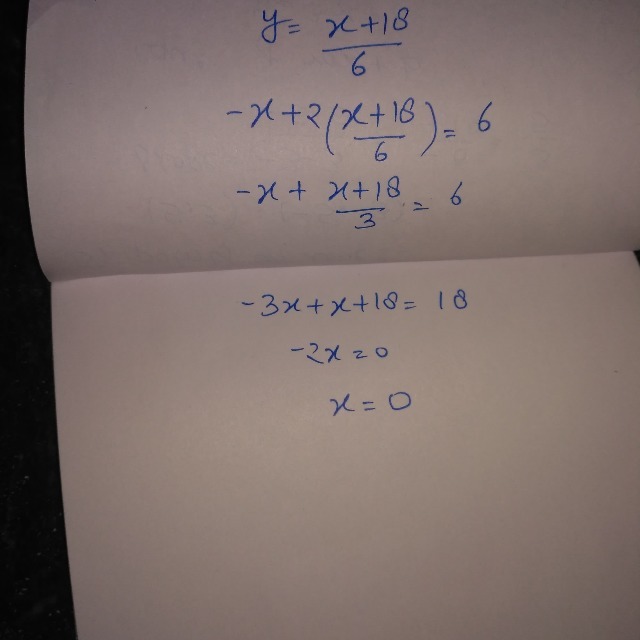 y = (x+18)/6
-x+2((x+18)/6) = 6
-x + (x+18)/3 = 6
-3x+x+18 = 18
-2x = 0
x = 0